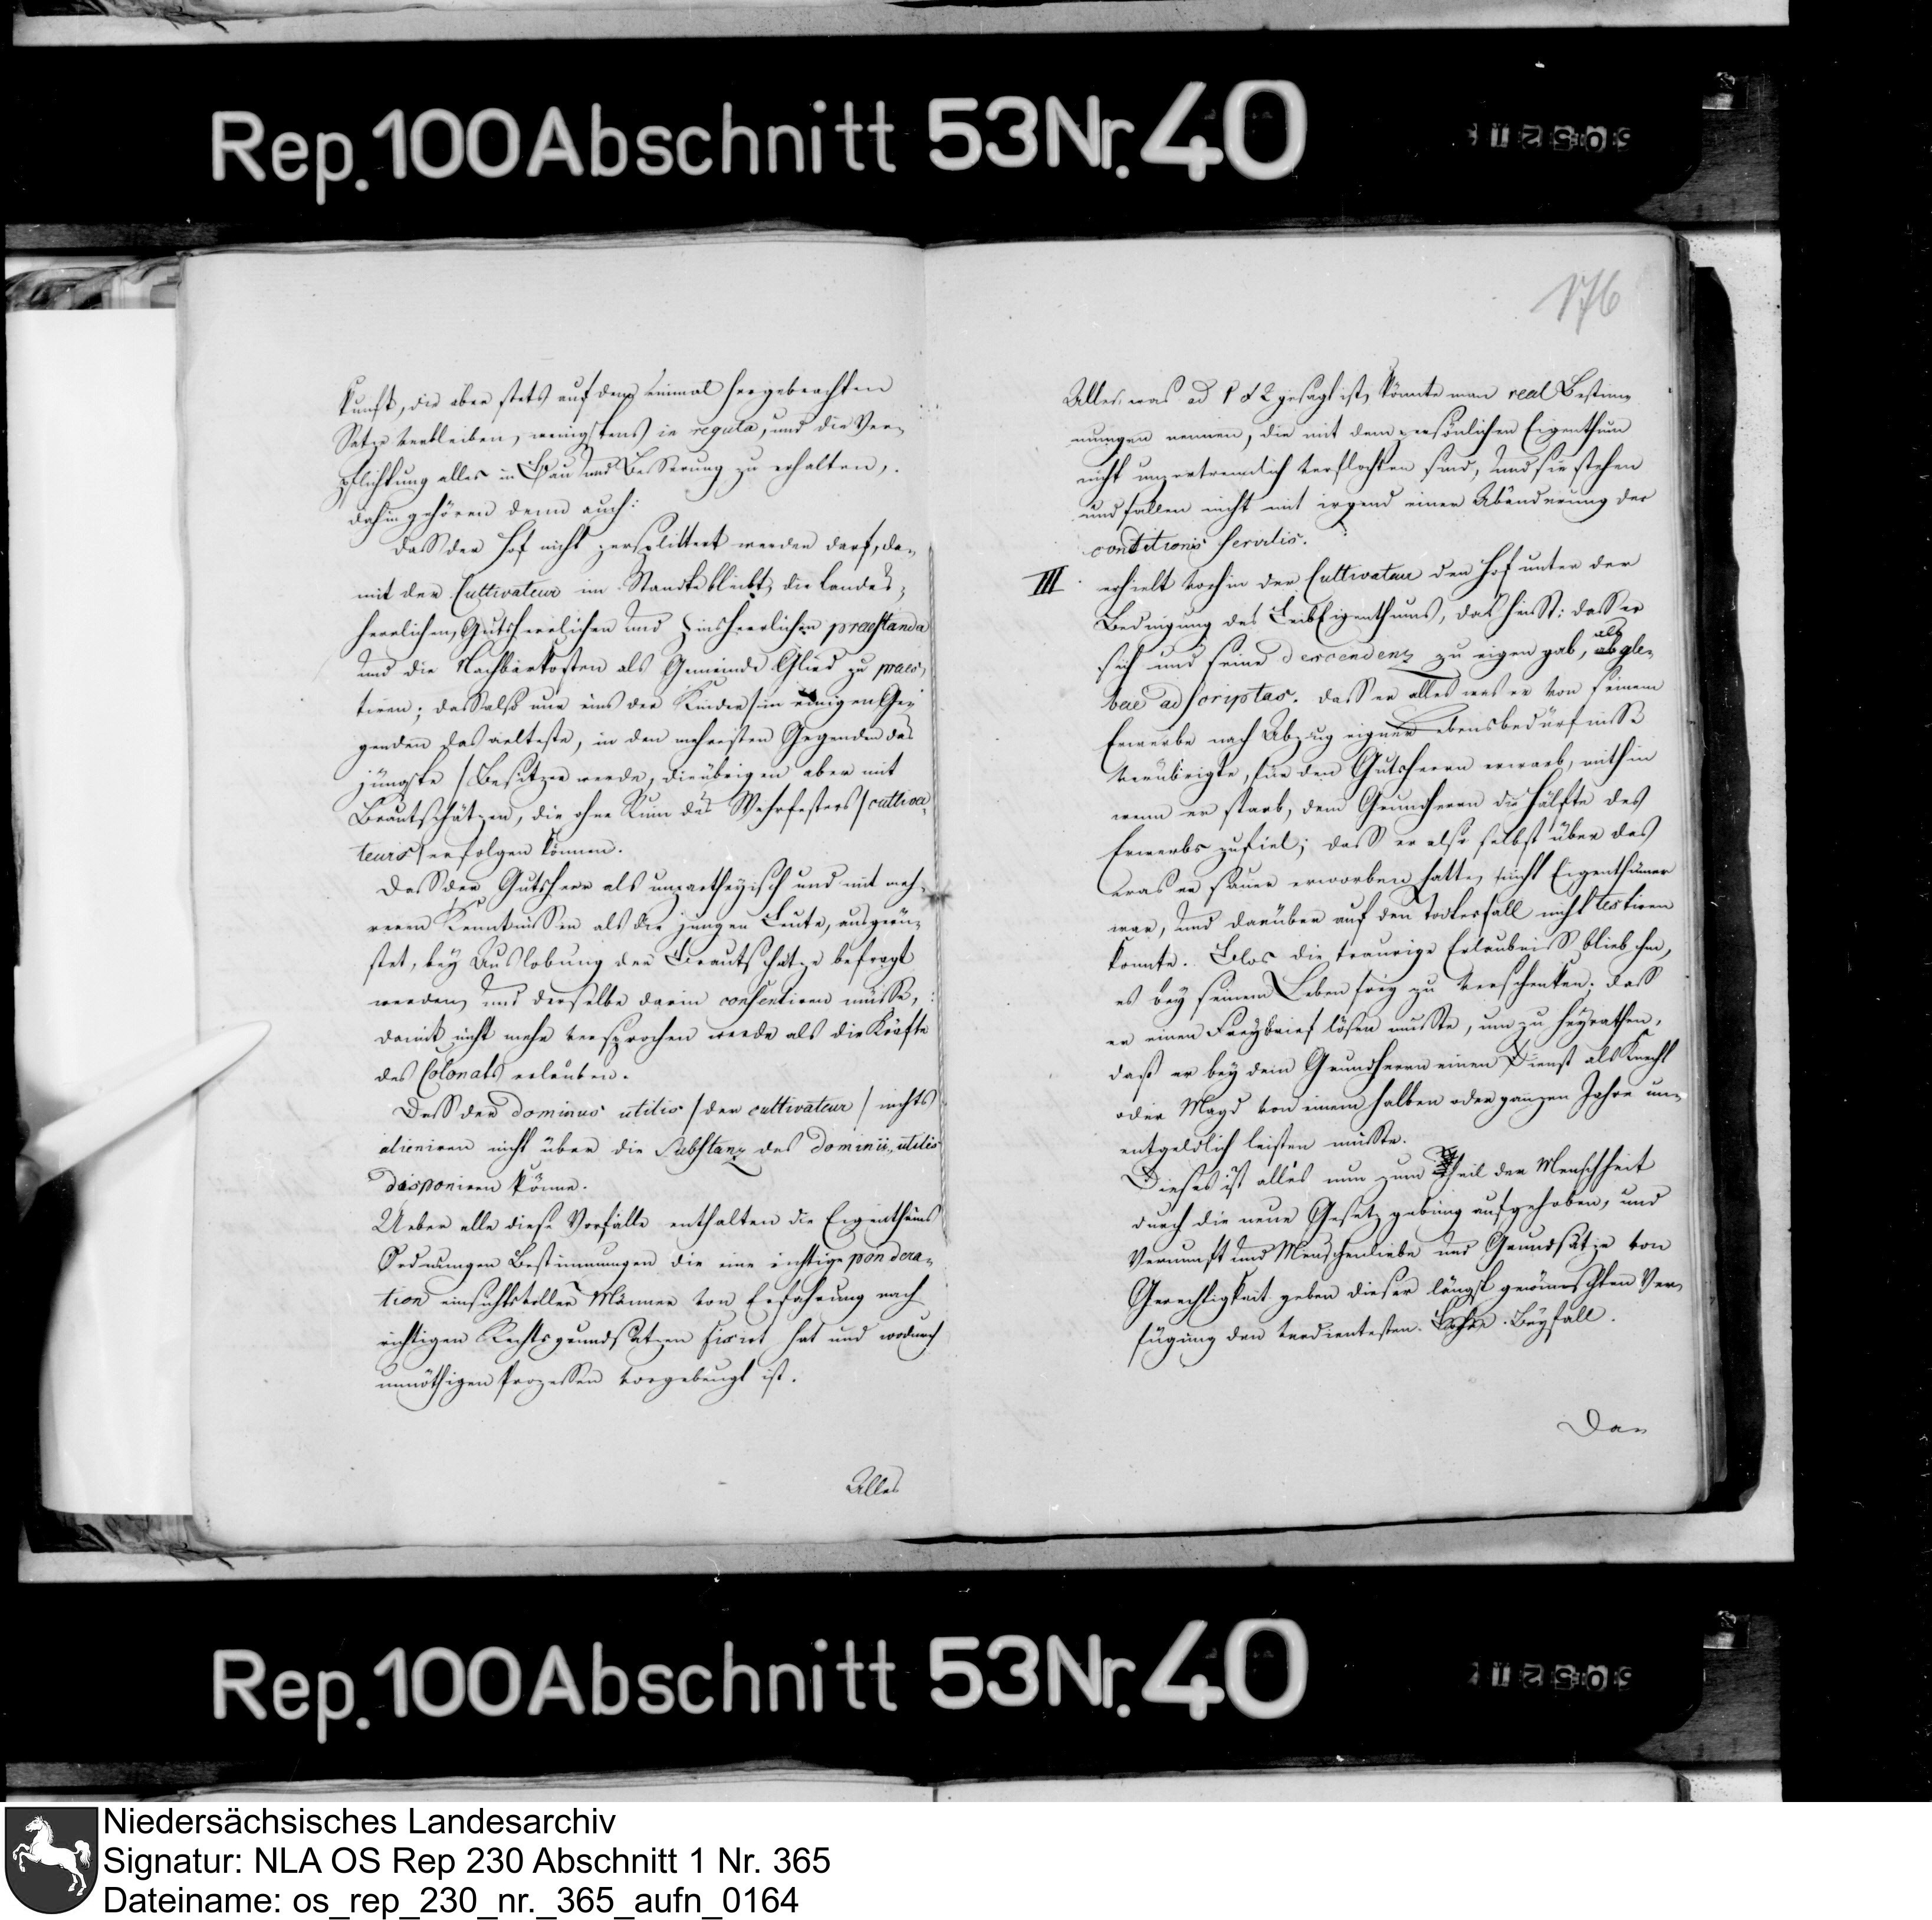 Rep. 100 Abschnitt 53 Nr. 40
kunft, die aber stets auf dem einmal hergebrachten
Satze verbleiben, wenigstens in regula, und die Ver-
pflichtung alles in Bau und Besserung zu erhalten,
dahin gehören denn auch:
Dass der Hof nicht zersplittert werden darf, da-
mit der Cultivateur im Stande bleibt, die Landes-
herrlichen, Gutsherrlichen und Zinsherrlichen praestanda
und die Nachbarkosten als Gemeinde Glied zu praes-
tiren; dass also nur eins der Kinder / in einigen Ge-
genden das aelteste, in den mehresten Gegenden das
jüngste / Besitzer werde, die übrigen aber mit
Brautschätzen, die ohne Ruin des Wehrfesters / cultiva-
teurs / erfolgen können.
Dass der Gutsherr als unpartheyisch und mit meh-
reren Kenntnissen als die jungen Leute, ausgerü-
stet, bey Auslobung der Brautschätze befragt
werden, und derselbe darin consentiren müsse,
damit nicht mehr versprochen werde als die Kräfte
des Colonats erlauben.
Dass der dominus utilis / der cultivateur / nichts
alieniren nicht über die Substanz des dominii utilis
disponiren könne.
Ueber alle diese Vorfälle enthalten die Eigenthums
Ordnungen Bestimmungen die eine richtige pondera-
tion einsichtsvoller Männer von Erfahrung nach
richtigen Rechtsgrundsätzen fixirt hat und wodurch
unnöthigen Prozessen vorgebeugt ist.
Alles
176
Alles was ad 1 & 2 gesagt ist, könnte man real Bestim-
mungen nennen, die mit dem persönlichen Eigenthum
nicht unzertrennlich verflochten sind, und sie stehen
und fallen nicht mit irgend einer Abänderung der
conditionis servilis.
III. erhielt vorhin der Cultivateur den Hof unter der
Bedingung des Leibeigenthums, das heisst: dass er
sich und seine descendenz zu eigen gab, als gle-
bae adscriptas. dass er alles was er von seinem
Erwerbe nach Abzug eigner Lebensbedürfnisse
verübrigte, für den Gutsherrn erwarb, mithin
wenn er starb, dem Grundherrn die Hälfte des
Erwerbs zufiel; dass er also selbst über das
was er sauer erworben hatte, nicht Eigenthümer
war, und darüber auf den Todesfall nicht testiren
konnte. Blos die traurige Erlaubniss blieb ihm,
es bey seinem Leben frey zu verschenken; dass
er einen Freybrief lösen musste, um zu heyrathen,
daß er bey dem Grundherrn einen Dienst als Knecht
oder Magd von einem halben oder ganzen Jahre un-
entgeldlich leisten müsste.
Dieses ist alles nun zum Theil der Menschheit
durch die neue Gesetzgebung aufgehoben, und
Vernunft und Menschenliebe und Grundsätze von
Gerechtigkeit geben dieser längst gewünschten Ver-
fügung den verdientesten Beyfall.
Dar
Rep. 100 Abschnitt 53 Nr. 40
Niedersächsisches Landesarchiv
Signatur: NLA OS Rep 230 Abschnitt 1 Nr. 365
Dateiname: os_rep_230_nr._365_aufn_0164